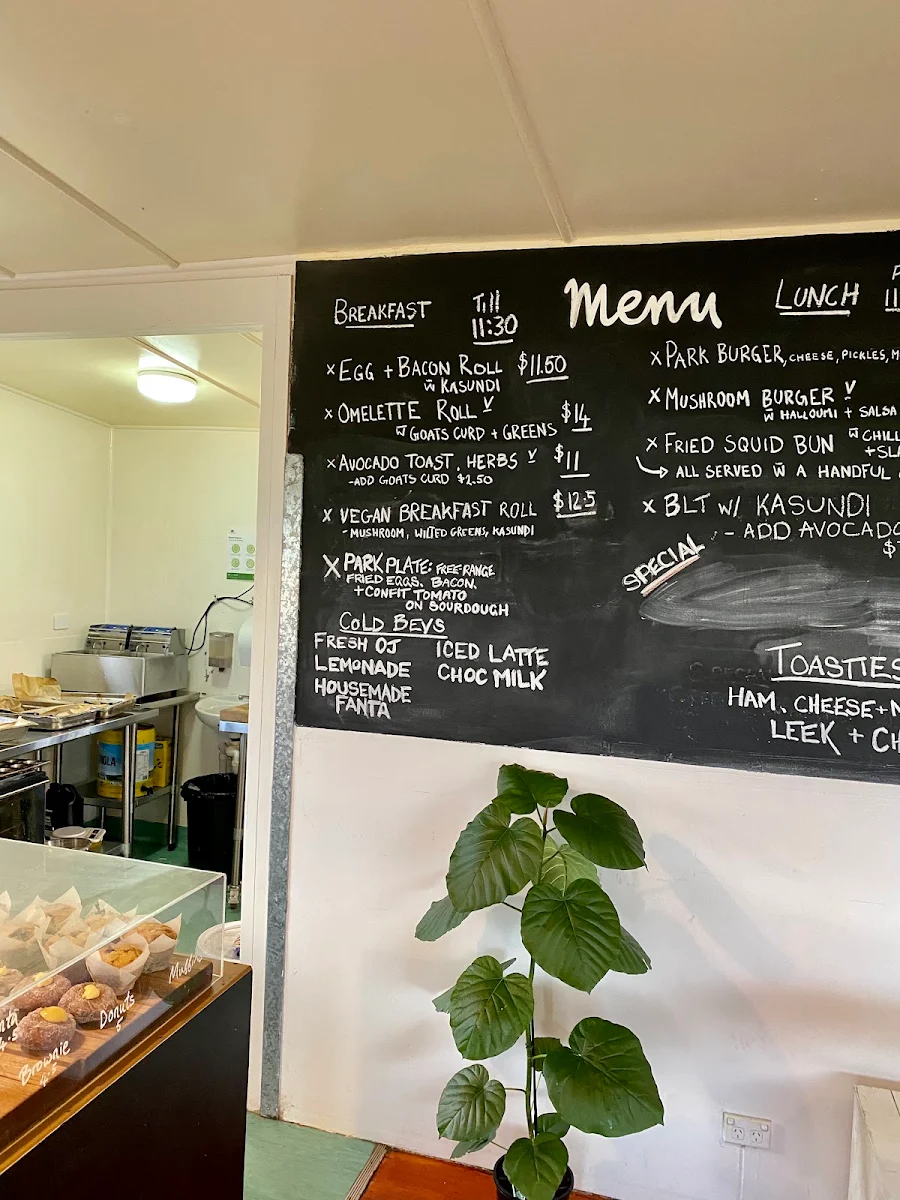 Menu
BREAKFAST
Till
11:30
x EGG + BACON ROLL $11.50
w̄ KASUNDI
x OMELETTE ROLL V
w̄ GOATS CURD + GREENS $14
x AVOCADO TOAST, HERBS V $11
-ADD GOATS CURD $2.50
x VEGAN BREAKFAST ROLL $12.5
- MUSHROOM, WILTED GREENS, KASUNDI
X PARK PLATE: FREE-RANGE
FRIED EGGS, BACON,
+CONFIT TOMATO
ON SOURDOUGH
COLD BEVS
FRESH OJ
LEMONADE
HOUSEMADE
FANTA
ICED LATTE
CHOC MILK
LUNCH
x PARK BURGER, CHEESE, PICKLES,
x MUSHROOM BURGER V
w̄ HALLOUMI + SALSA
x FRIED SQUID BUN w̄ CHILL
ALL SERVED w̄ A HANDFUL
x BLT w/ KASUNDI
- ADD AVOCADO
SPECIAL
TOASTIES
HAM, CHEESE +
LEEK +
Donuts
5
Brownie
4.5